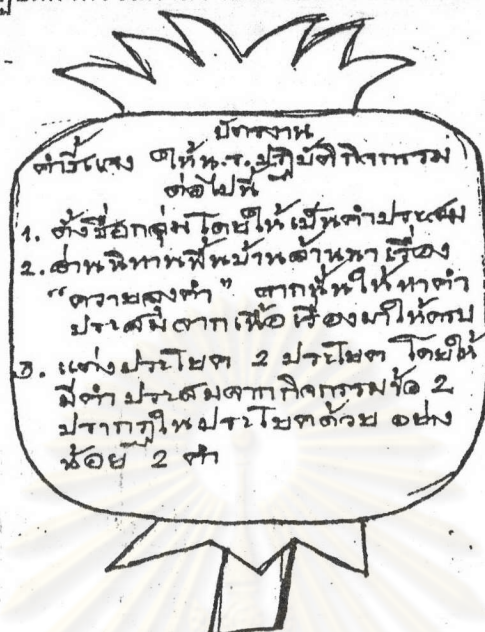 บัตรงาน
คำชี้แจง ให้ น.ร. ปฏิบัติกิจกรรม
ต่อไปนี้
1. ตั้งชื่อกลุ่มโดยให้เป็นคำประสม
2. อ่านนิทานพื้นบ้านล้านนาเรื่อง
"ควายลุงคำ" จากนั้นให้หาคำ
ประสมจากเนื้อเรื่องมาให้ครบ
3. แต่งประโยค 2 ประโยค โดยให้
มีคำประสมจากกิจกรรมข้อ 2
ปรากฏในประโยคด้วย อย่าง
น้อย 2 คำ